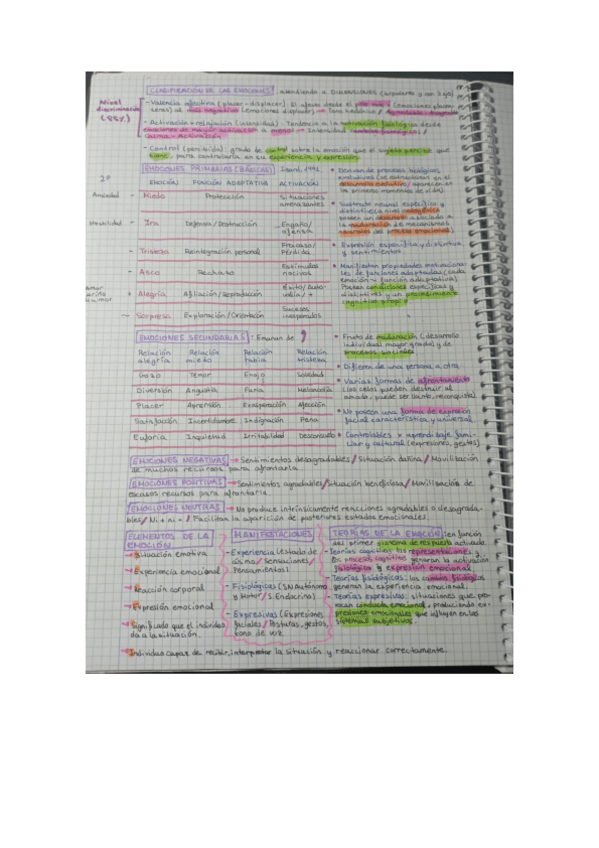 CLASIFICACIÓN DE LAS EMOCIONES atendiendo a DIMENSIONES
Nivel discriminación (88%)
- Valencia afectiva (placer - displacer): El afecto desde el
- Activación o relajación (intensidad): Tendencia a la activación fisiológica desde
emociones de mayor activación a menor → Intensidad
calma - Activación
- Control (percibido): grado de control sobre la emoción que el sujeto percibe que
tiene, para controlarla en su experiencia y expresión.
EMOCIONES PRIMARIAS (BÁSICAS)
EMOCIÓN FUNCIÓN ADAPTATIVA ACTIVACIÓN
Ansiedad - Miedo Protección Situaciones amenazantes
Hostilidad - Ira Defensa / Destrucción Engaño / ofensa
- Tristeza Reintegración personal Fracaso / Pérdida
- Asco Rechazo Estímulos nocivos
+ Alegría Afiliación / Reproducción
~ Sorpresa Exploración / Orientación Sucesos inesperados
• Derivan de procesos biológicos,
evolutivos
desarrollo evolutivo / aparecen en
los primeros momentos de vida).
• Sustrato neural específico y
distintivo
poseen un desarrollo asociado a
la maduración de mecanismos
neurales del proceso emocional)
• Expresión específica y distintiva
y sentimientos
• Manifiestan propiedades motivaciona-
les de funciones adaptativas (cada
emoción - función adaptativa)
Poseen condiciones específicas y
distintivas y un procesamiento
cognitivo
EMOCIONES SECUNDARIAS: Emanan de
Relación alegría Relación miedo Relación rabia Relación tristeza
Gozo Temor Enojo Soledad
Diversión Angustia Furia Melancolía
Placer Aprensión Exasperación Aflicción
Satisfacción Incertidumbre Indignación Pena
Euforia Inquietud Irritabilidad Desconsuelo
• Fruto de maduración (desarrollo
individual mayor grado) y de
procesos sociales
• Difieren de una persona a otra
• Varias formas de afrontamiento
(los celos pueden destruir al
amado, puede ser llanto, reconquista)
• No poseen una forma de expresión
facial característica y universal
• Controlables x aprendizaje fami-
liar y cultural (expresiones, gestos)
EMOCIONES NEGATIVAS → Sentimientos desagradables / Situación dañina / Movilización
de muchos recursos para afrontarla.
EMOCIONES POSITIVAS → Sentimientos agradables / Situación beneficiosa / Movilización de
escasos recursos para afrontarla.
EMOCIONES NEUTRAS → No produce intrínsicamente reacciones agradables o desagrada-
bles / Ni + ni - / Facilitan la aparición de posteriores estados emocionales.
ELEMENTOS DE LA EMOCIÓN
→ Situación emotiva
→ Experiencia emocional
→ Reacción corporal
→ Expresión emocional
→ Significado que el individuo
da a la situación.
MANIFESTACIONES
- Experiencia (estado de
ánimo / Sensaciones /
Pensamientos)
- Fisiológicas (SN Autónomo
y Motor / S. Endocrino)
- Expresivas (Expresiones
faciales / Posturas, gestos,
tono de voz
TEORÍAS DE LA EMOCIÓN
del primer sistema de respuesta activado.
- Teorías cognitivas: las representaciones y
los procesos cognitivos generan la activación
fisiológica y expresión emocional
- Teorías fisiológicas: los cambios fisiológicos
generan la experiencia emocional.
- Teorías expresivas: situaciones que pro-
vocan conducta emocional, produciendo ex-
presiones emocionales que influyen en los
sistemas subjetivos.
→ Individuo capaz de recibir, interpretar la situación y reaccionar correctamente.